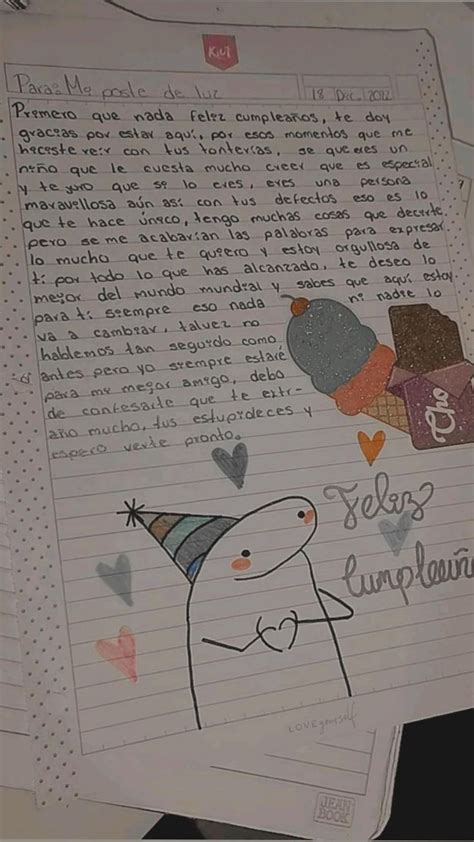 KIUT
Para: Mi poste de luz
18 Dic. 2022
Primero que nada feliz cumpleaños, te doy
gracias por estar aquí, por esos momentos que me
heceste reir con tus tonterías, se que eres un
niño que le cuesta mucho creer que es especial
y te juro que si lo eres, eres una persona
maravellosa aún asi con tus defectos eso es lo
que te hace único, tengo muchas cosas que decirte
pero se me acabarian las palabras para expresar
lo mucho que te quiero y estoy orgullosa de
ti por todo lo que has alcanzado, te deseo lo
mejor del mundo mundial y sabes que aquí estoy
para ti siempre eso nada ni nadie lo
va a cambiar, talvez no
hablemos tan seguido como
antes pero yo siempre estaré
para mi mejor amigo, debo
de confesarte que te extr-
año mucho, tus estupideces y
espero verte pronto.
Cho
Feliz
Cumpleañ
LOVE yourself
JEAN
BOOK